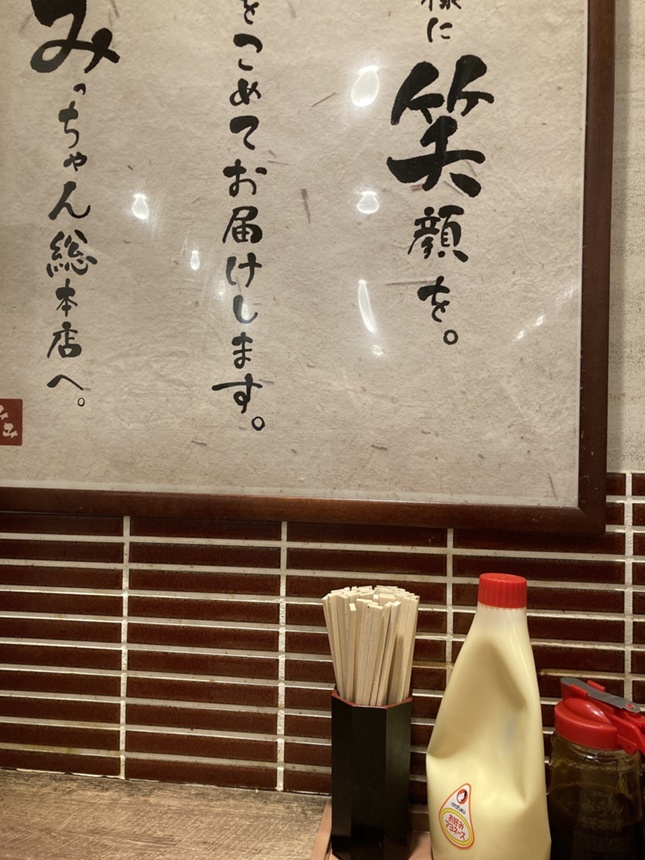 様に
笑顔を。
をこめてお届けします。
みっちゃん総本店へ。
お好み
マヨネーズ